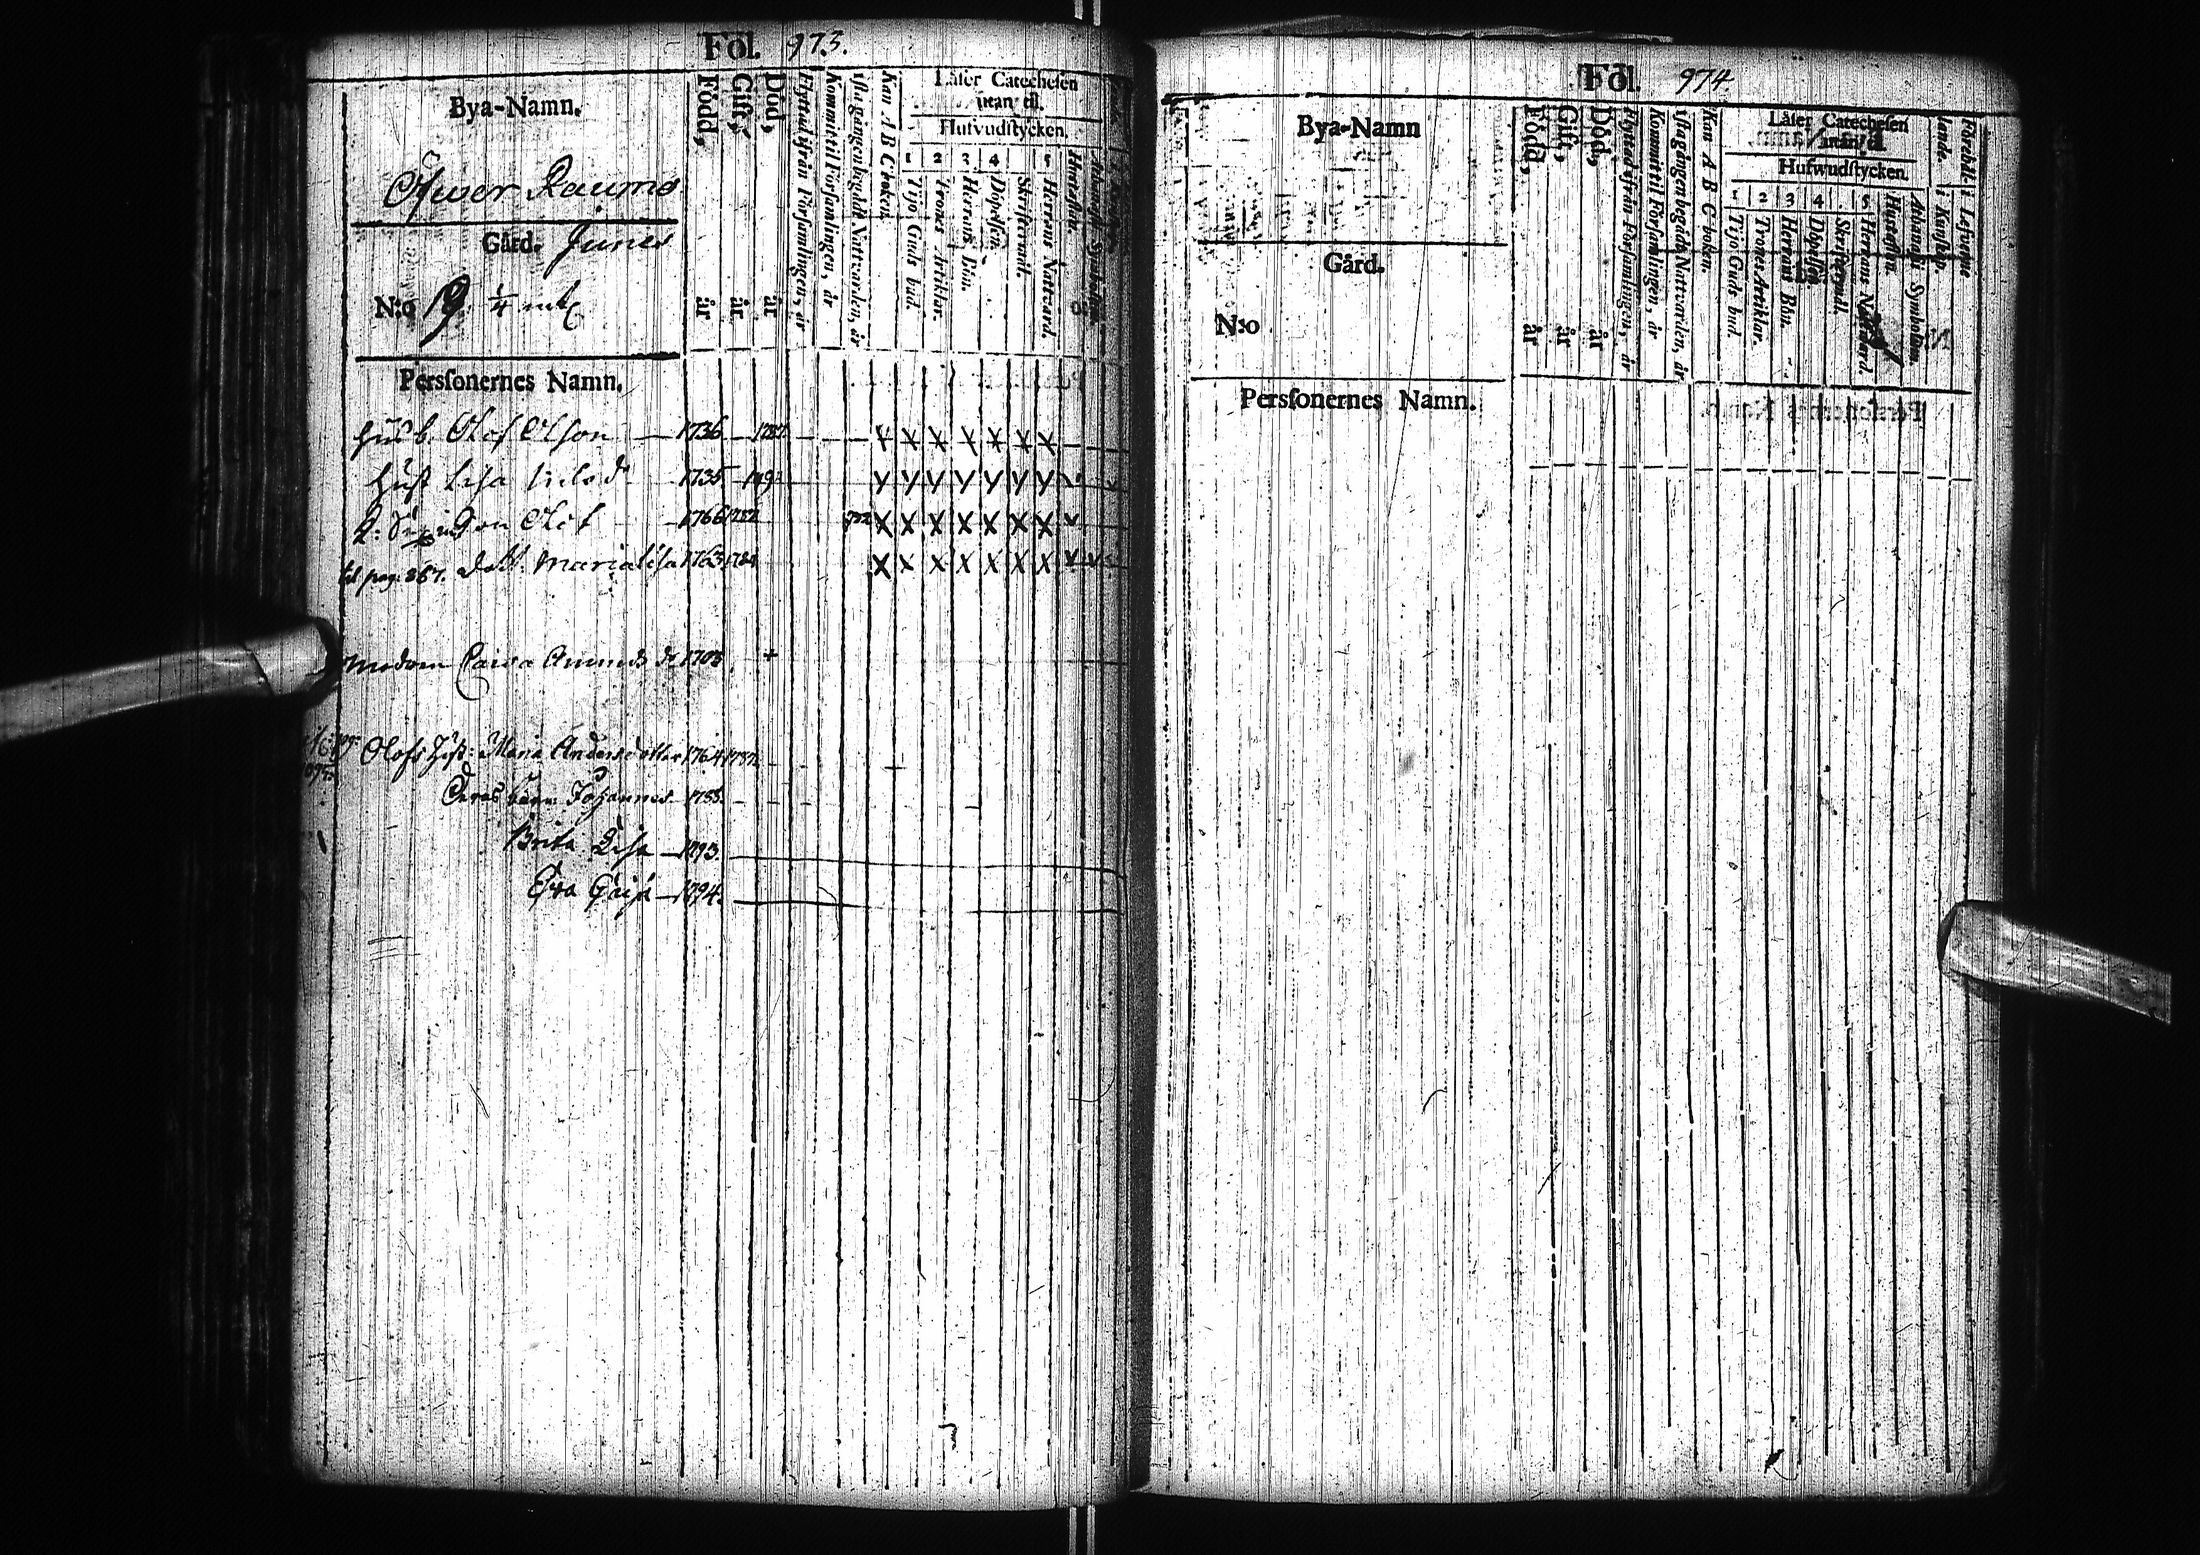 Fol. 973.
Bya-Namn.
Öfwer Raumo
Gård. Junes
N:o 19 1/4 mtl
Född, år
Gift, år
Död, år
Flyttad ifrån Församlingen, år
Kommit til Församlingen, år
1sta gången begådt Nattvarden, år
Kan A B C boken.
Låser Catechesen
utan til.
Hufvudstycken.
1 2 3 4 5
Tijo Guds bud.
Trones Artiklar.
Herrans Bön.
Döpelsen.
Skriftermål.
Herrens Nattvard.
Hustaflan.
Athanasii Symbolum.
Persſonernes Namn.
Husb. Olof Olsson 1736 1787
Hust Lisa 1735
Son Olof 1766 1782
til pag. 267. Dott. Maria Lisa 1763 1784
Modren Caisa 1703 +
Olofs Hust: Maria Andersdotter 1764 1787.
Deras barn Johannes 1788.
Brita Lisa 1793.
Eva Caisa 1794.
Fol. 974.
Bya-Namn
Gård.
N:o
Född, år
Gift, år
Död, år
Flyttad ifrån Församlingen, år
Kommit til Församlingen, år
1sta gången begådt Nattvarden, år
Kan A B C boken.
Låser Catechesen
utan til.
Hufwudstycken.
1 2 3 4 5
Tijo Guds bud.
Trones Artiklar.
Herrans Bön.
Döpelsen.
Skriftermål.
Herrens Nattvard.
Hustaflan.
Athanasii Symbolum.
Persſonernes Namn.